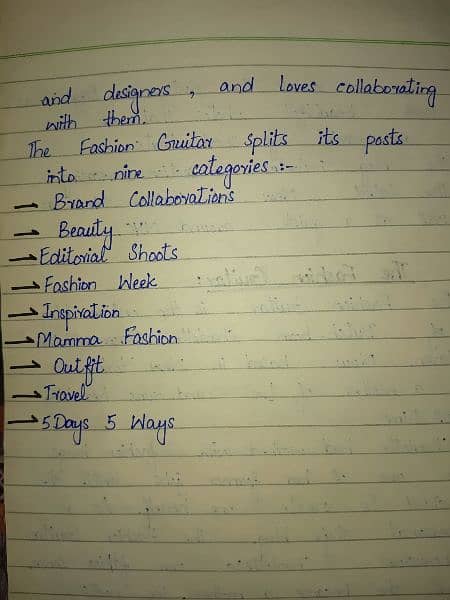 and designers, and loves collaborating
with them.
The Fashion Guitar splits its posts
into nine categories :-
→ Brand Collaborations
→ Beauty
→ Editorial Shoots
→ Fashion Week
→ Inspiration
→ Mamma Fashion
→ Outfit
→ Travel
→ 5 Days 5 Ways